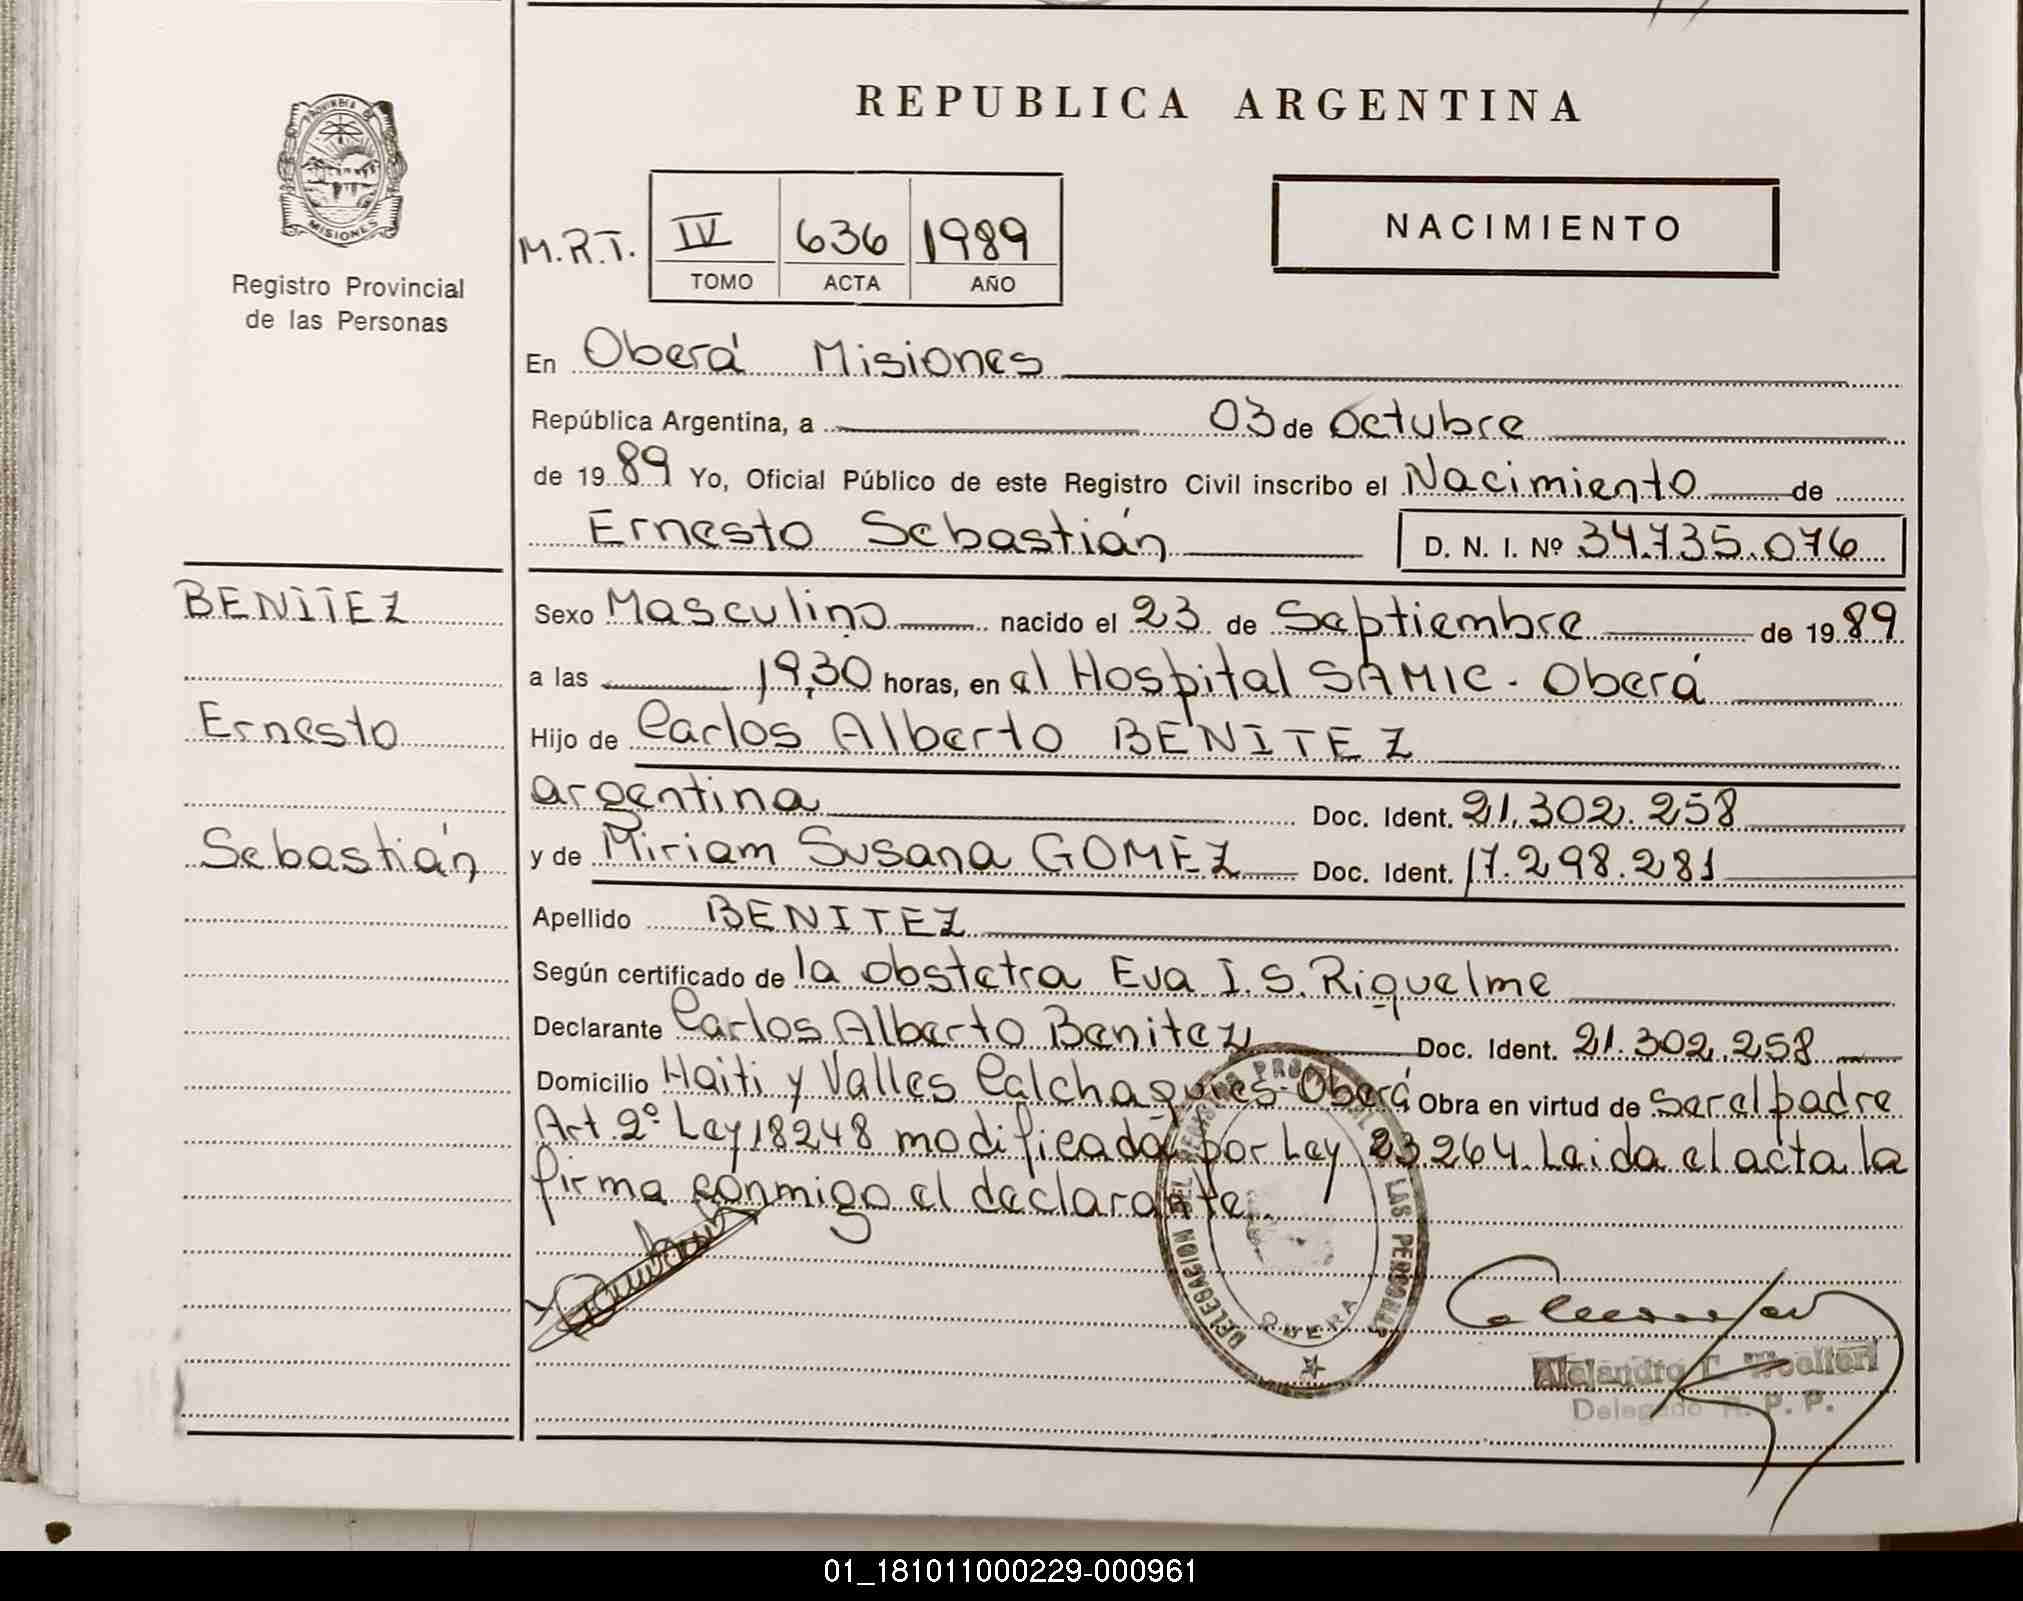 REPUBLICA ARGENTINA
PROVINCIA DE
MISIONES
Registro Provincial
de las Personas
NACIMIENTO
M.R.T. IV 636 1989
TOMO ACTA AÑO
En Oberá Misiones
República Argentina, a 03 de Octubre
de 1989 Yo, Oficial Público de este Registro Civil inscribo el Nacimiento de
Ernesto Sebastián D. N. I. Nº 34.735.076
BENITEZ
Ernesto
Sebastián
Sexo Masculino nacido el 23 de Septiembre de 1989
a las 19,30 horas, en el Hospital SAMIC - Oberá
Hijo de Carlos Alberto BENITEZ
argentina Doc. Ident. 21.302.258
y de Miriam Susana GOMEZ Doc. Ident. 17.298.281
Apellido BENITEZ
Según certificado de la obstetra Eva I. S. Riquelme
Declarante Carlos Alberto Benitez Doc. Ident. 21.302.258
Domicilio Haiti y Valles Calchaquies - Oberá Obra en virtud de ser el padre
Art. 2º Ley 18248 modificada por Ley 23.264 Leida el acta la
firma conmigo el declarante.
DELEGACION DEL REGISTRO PROVINCIAL DE LAS PERSONAS
OBERA
Alejandro
Delegado R. P. P.
01_181011000229-000961